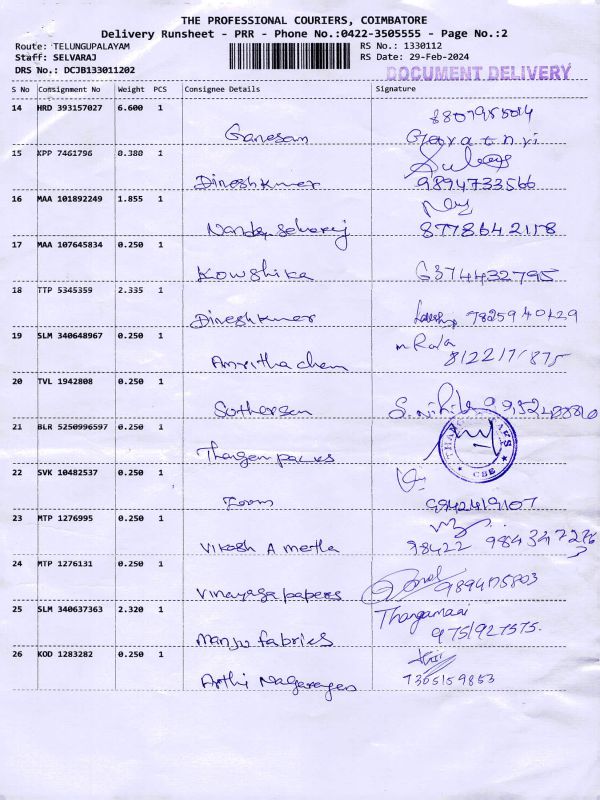 THE PROFESSIONAL COURIERS, COIMBATORE
Delivery Runsheet - PRR - Phone No.:0422-3505555 - Page No.:2
Route: TELUNGUPALAYAM RS No.: 1330112
Staff: SELVARAJ RS Date: 29-Feb-2024
DRS No.: DCJB133011202 DOCUMENT DELIVERY
S No Consignment No Weight PCS Consignee Details Signature
14 HRD 393157027 6.600 1
Ganesan Gayathri
15 KPP 7461796 0.380 1
Dineshkumar 9894733566
16 MAA 101892249 1.855 1
Nanda Selvaraj 8778642118
17 MAA 107645834 0.250 1
Kowshika 6374432795
18 TTP 5345359 2.335 1
Dineshkumar
19 SLM 340648967 0.250 1
Amritha chem
20 TVL 1942808 0.250 1
21 BLR 5250996597 0.250 1
Thangam packs
22 SVK 10482537 0.250 1
9942419107
23 MTP 1276995 0.250 1
Vikash A metla 98422
24 MTP 1276131 0.250 1
Vinayaga papers
25 SLM 340637363 2.320 1
Thangamani
Manju fabrics 9751927575.
26 KOD 1283282 0.250 1
Arthi 7305159853